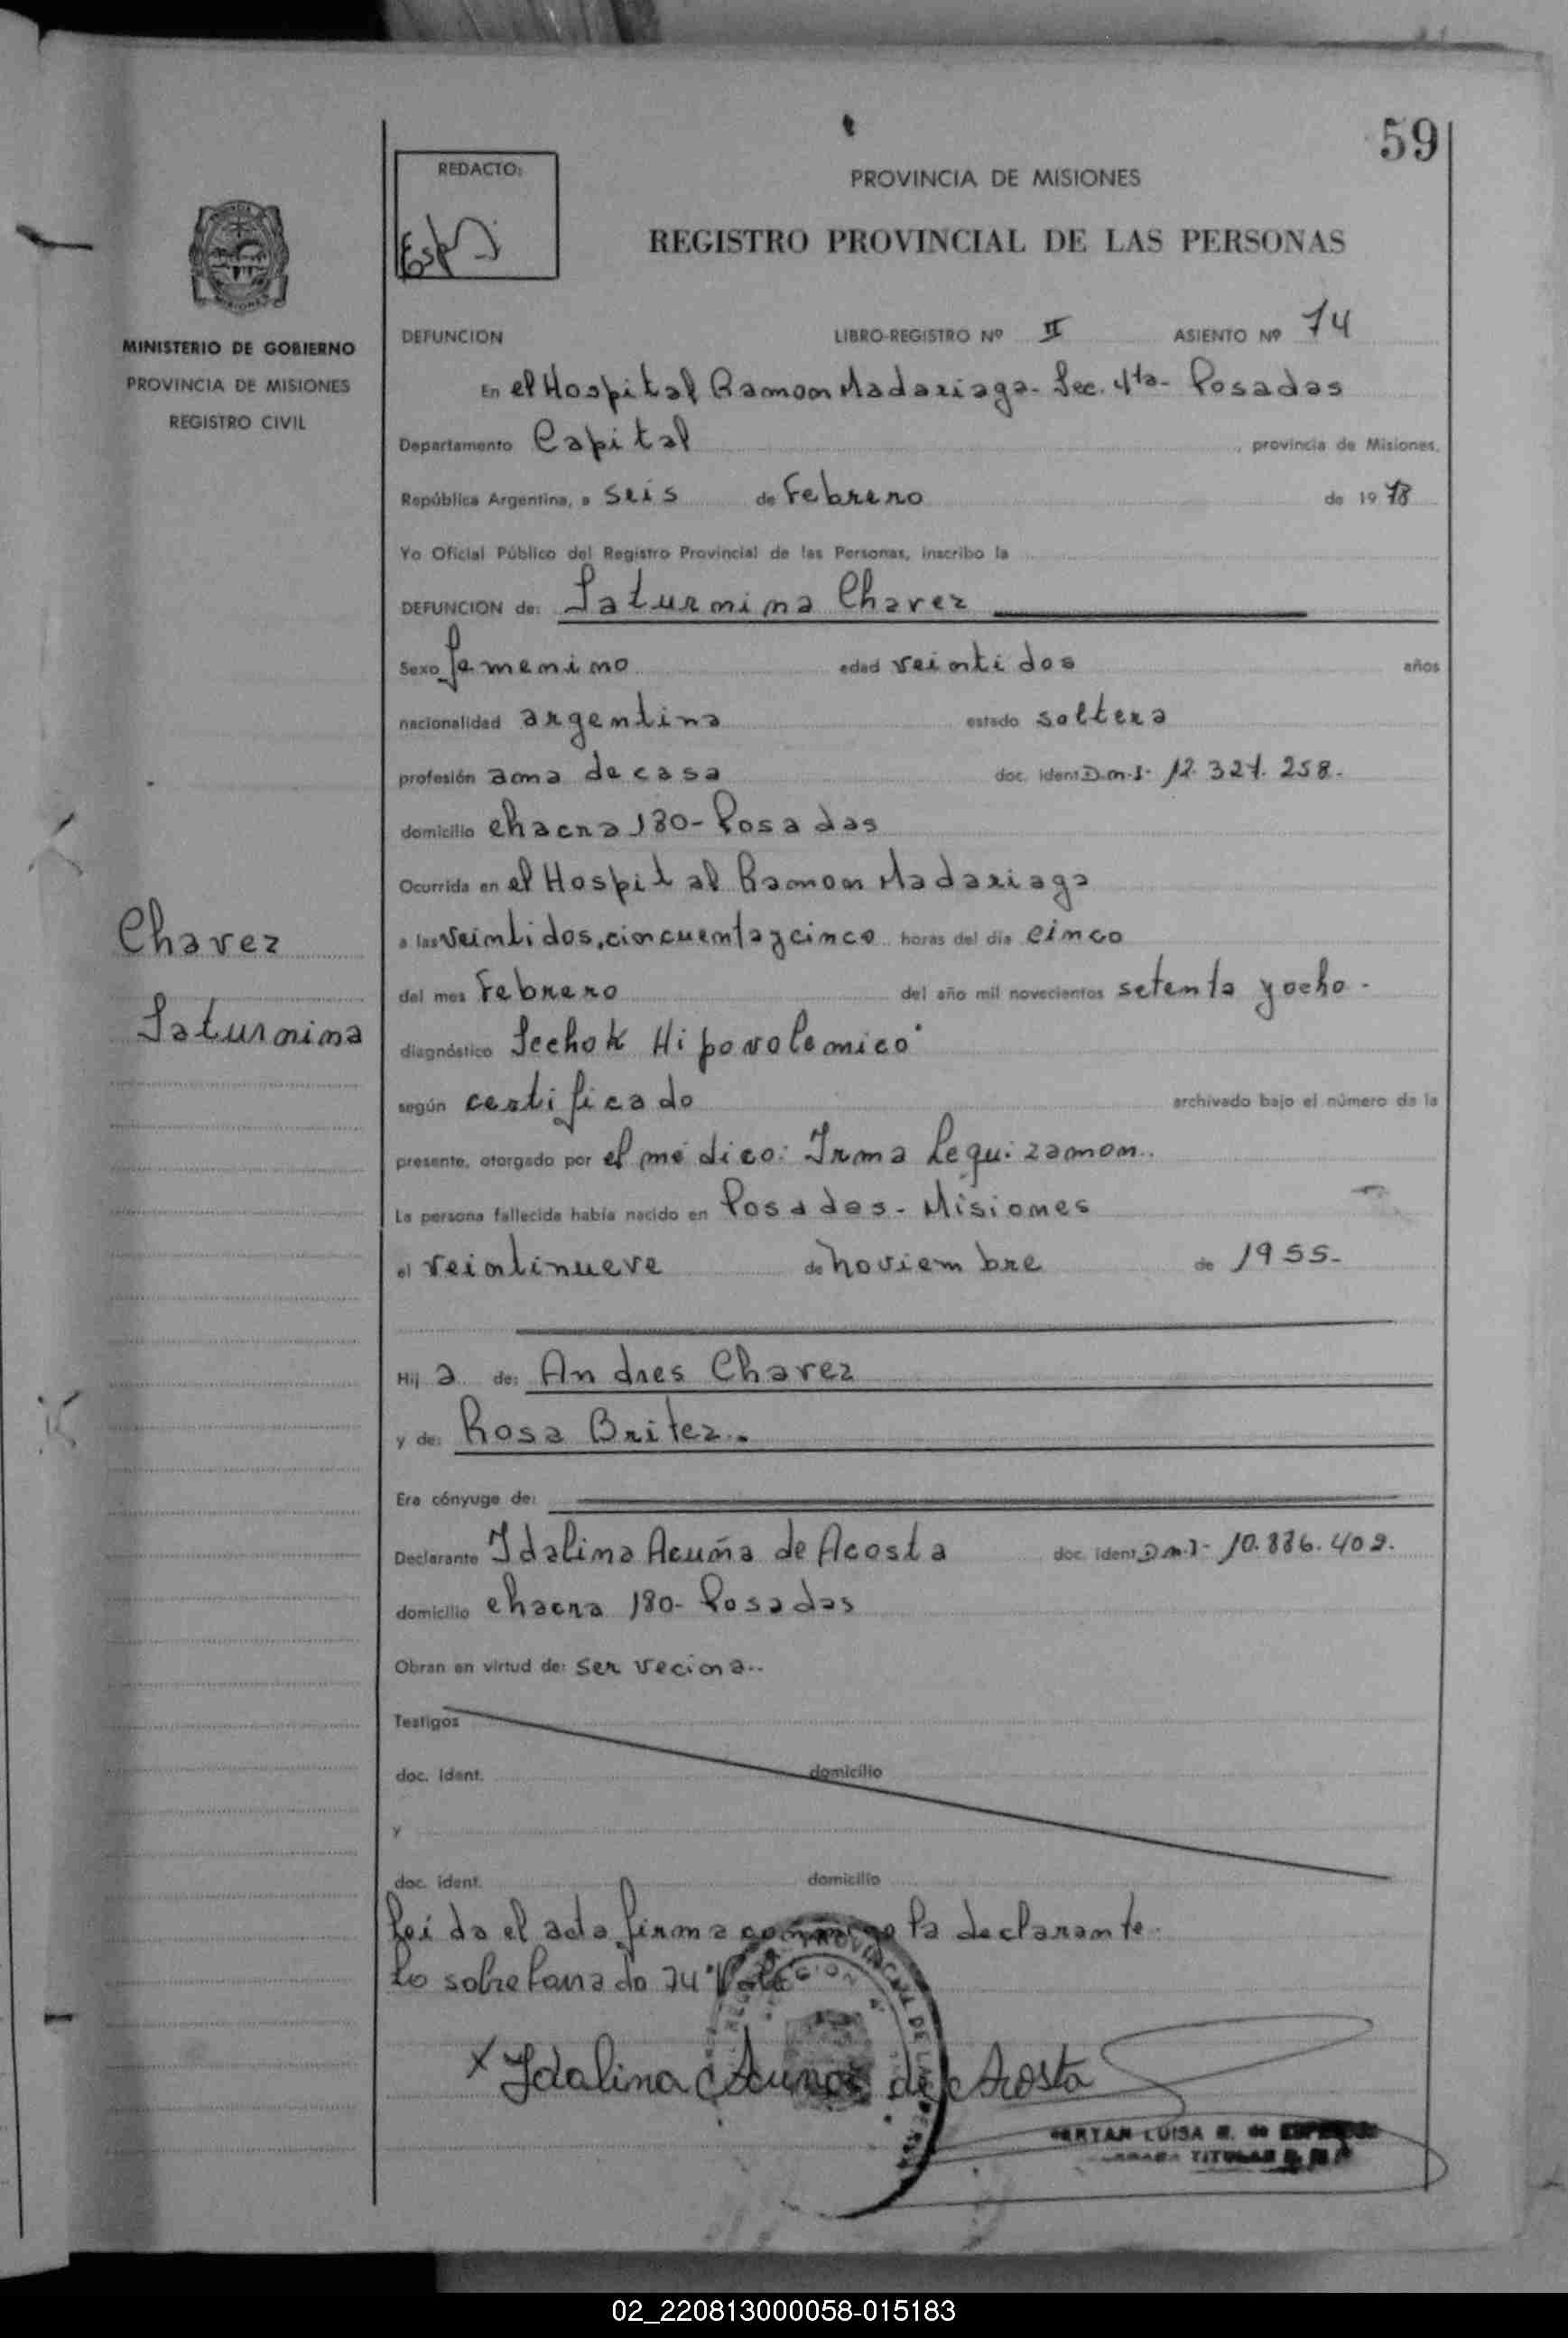 59
REDACTO:
PROVINCIA DE MISIONES
REGISTRO PROVINCIAL DE LAS PERSONAS
MINISTERIO DE GOBIERNO
PROVINCIA DE MISIONES
REGISTRO CIVIL
DEFUNCION LIBRO-REGISTRO Nº II ASIENTO Nº 74
En el Hospital Ramon Madariaga - Sec. 4ta - Posadas
Departamento Capital, provincia de Misiones,
República Argentina, a seis de Febrero de 1978
Yo Oficial Público del Registro Provincial de las Personas, inscribo la
DEFUNCION de: Saturnina Chavez
Sexo femenino edad veintidos años
nacionalidad argentina estado soltera
profesión ama de casa doc. ident. D.n.I- 12.321.258.
domicilio chacra 180- Posadas
Ocurrida en el Hospital Ramon Madariaga
a las veintidos, cincuenta y cinco horas del día cinco
del mes Febrero del año mil novecientos setenta y ocho -
Chavez
Saturnina
diagnóstico Scchok Hipovolemico
según certificado archivado bajo el número de la
presente, otorgado por el médico: Irma Lequizamon.
La persona fallecida había nacido en Posadas - Misiones
el veintinueve de noviembre de 1955-
Hij a de: Andres Chavez
y de: Rosa Britez.
Era cónyuge de:
Declarante Idalina Acuña de Acosta doc. ident. D.n.I- 10.886.409.
domicilio chacra 180- Posadas
Obran en virtud de: ser vecina..
Testigos
doc. ident. domicilio
y
doc. ident. domicilio
Leida el acta firma conmigo la declarante.
Lo sobre 74 "Vale"
x Idalina Acuña de Acosta
LUISA
TITULAR
02_220813000058-015183